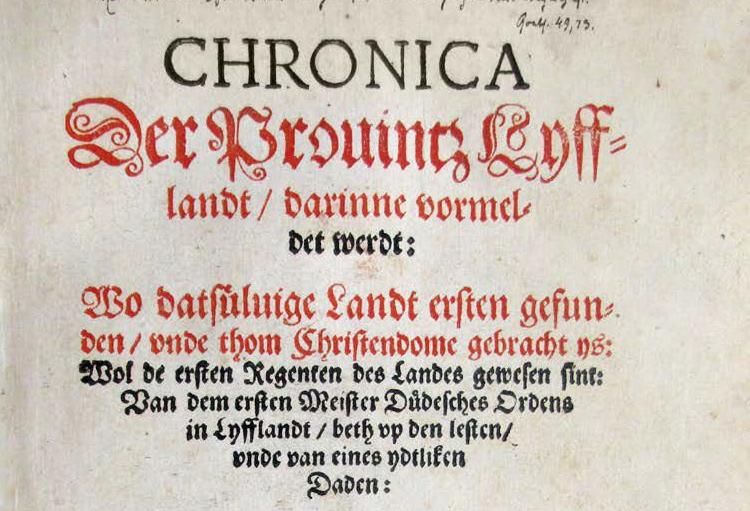 CHRONICA
Der Prouintz Lyff-
landt / darinne vormel-
det werdt:
Wo datsüluige Landt ersten gefun-
den / vnde thom Christendome gebracht ys:
Wol de ersten Regenten des Landes gewesen sint:
Van dem ersten Meister Düdesches Ordens
in Lyfflandt / beth vp den lesten /
vnde van eines ydtliken
Daden: